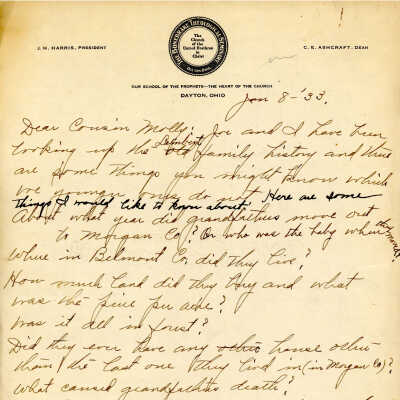 J. N. HARRIS, PRESIDENT
THE BONEBRAKE THEOLOGICAL SEMINARY
The Church of the United Brethren in Christ
C. E. ASHCRAFT, DEAN
OUR SCHOOL OF THE PROPHETS—THE HEART OF THE CHURCH
DAYTON, OHIO
Jan 8-'33.
Dear Cousin Molly, Joe and I have been
looking up the old Lambert family history and there
are some things you might know which
we younger ones do not. Here are some
things I would like to know about.
About what year did grandfathers move out
to Morgan Co? Or who was the baby when they moved?
Where in Belmont Co. did they live?
How much land did they buy and what
was the price per acre?
Was it all in forest?
Did they ever have any other house other
than the last one they lived in (in Morgan Co)?
What caused grandfathers death?